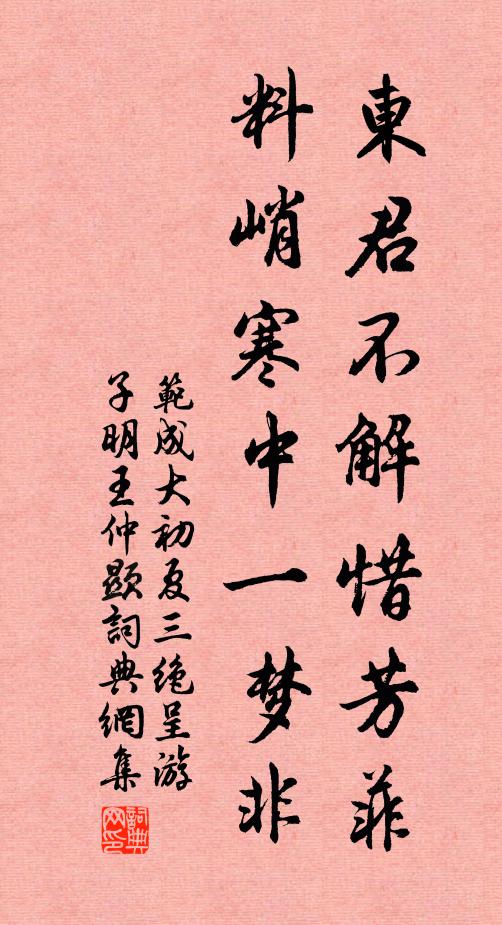 東君不解惜芳菲
料峭寒中一梦非
範成大初夏三绝呈游
子明王仲顯詞典網集
詞典
网印